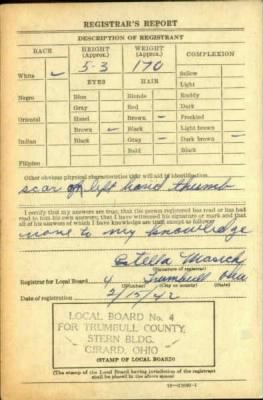 REGISTRAR'S REPORT
DESCRIPTION OF REGISTRANT
RACE HEIGHT (Approx.) WEIGHT (Approx.) COMPLEXION
White 5-3 170 Sallow
EYES HAIR Light
Negro Blue Blonde Ruddy
Gray Red Dark
Oriental Hazel Brown Freckled
Brown Black Light brown
Indian Black Gray Dark brown
Bald Black
Filipino
Other obvious physical characteristics that will aid in identification
scar on left hand thumb
I certify that my answers are true; that the person registered has read or has had
read to him his own answers; that I have witnessed his signature or mark and that
all of his answers of which I have knowledge are true, except as follows:
none to my knowledge
Estella
(Signature of registrar)
Registrar for Local Board 4 Trumbull Ohio
(Number) (City or county) (State)
Date of registration 2/15/42
LOCAL BOARD No. 4
FOR TRUMBULL COUNTY
STERN BLDG.
GIRARD, OHIO
(STAMP OF LOCAL BOARD)
(The stamp of the Local Board having jurisdiction of the registrant
shall be placed in the above space)